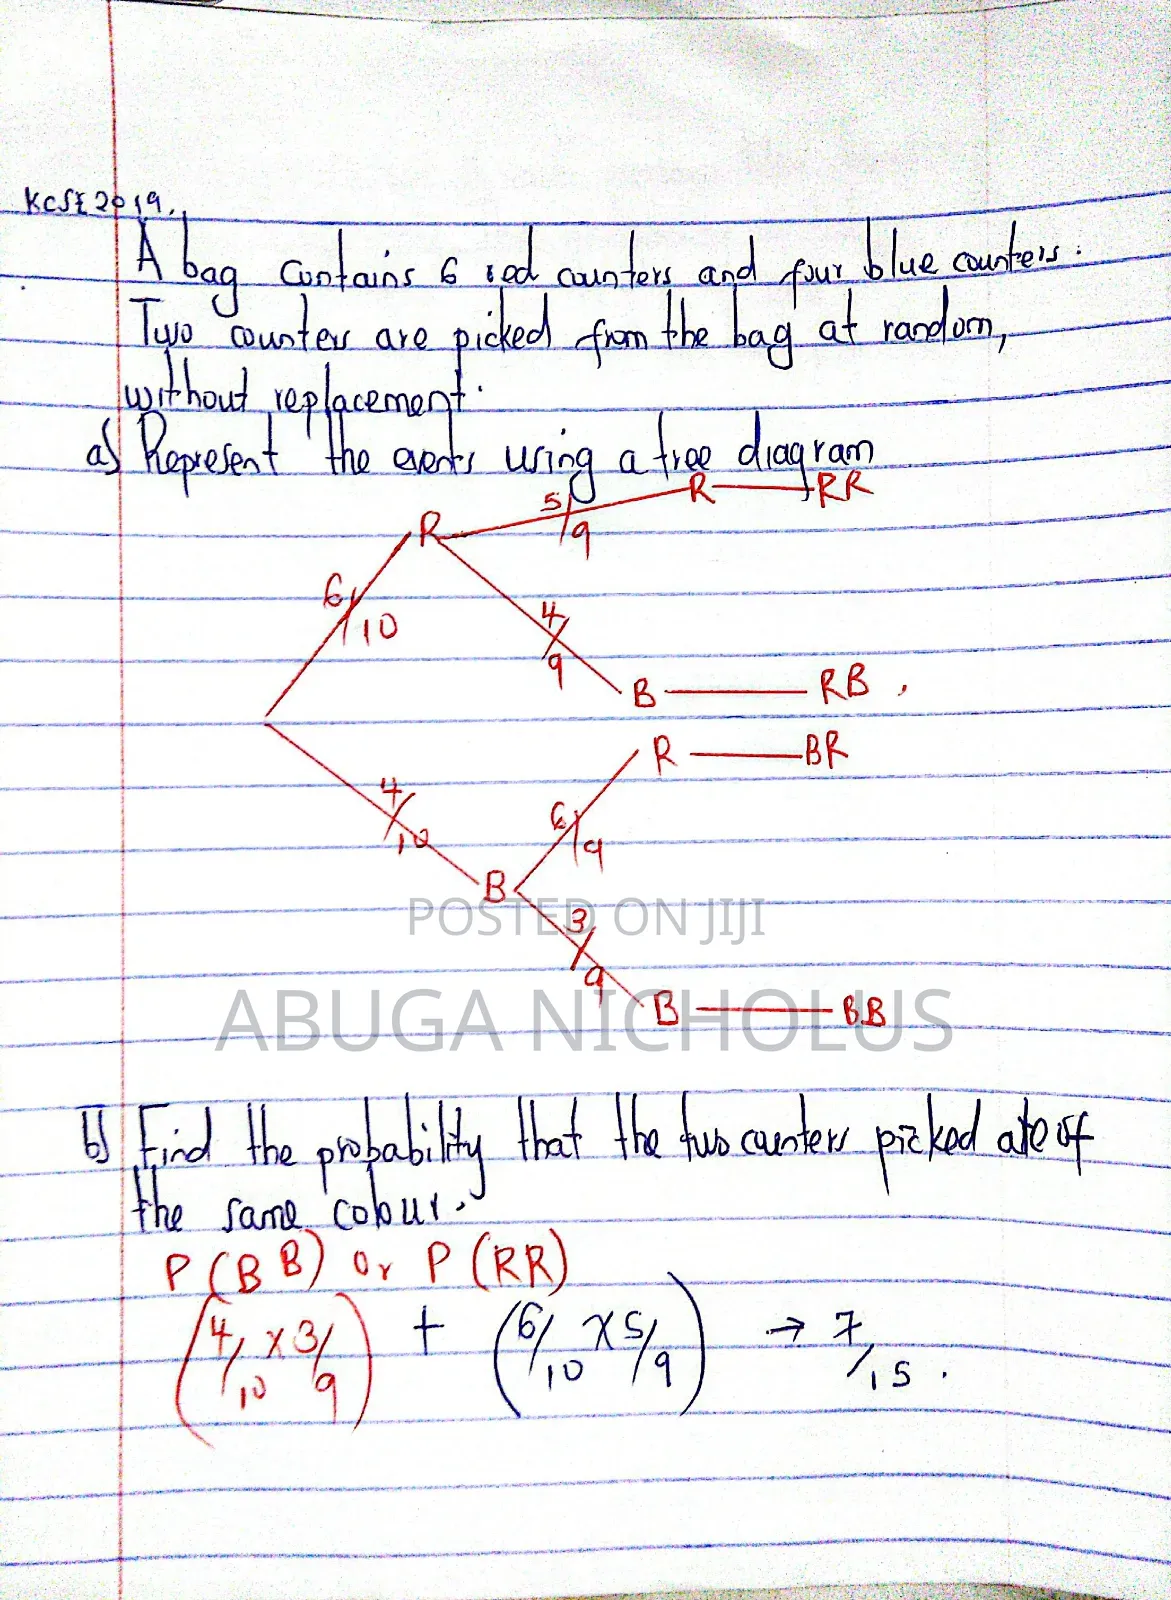 KCSE 2019.
A bag contains 6 red counters and four blue counters.
Two counters are picked from the bag at random,
without replacement.
a) Represent the events using a tree diagram
R 5/9 R RR
6/10
4/9
B RB
R BR
4/10
6/9
B
POSTED ON JIJI
3/9
ABUGA NICHOLUS
B BB
b) Find the probability that the two counters picked are of
the same colour.
P (BB) or P (RR)
(4/10 x 3/9) + (6/10 x 5/9) → 7/15.